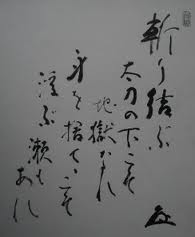 斬り結ぶ
太刀の下こそ
地獄なれ
身を捨てゝこそ
浮ぶ瀬もあれ